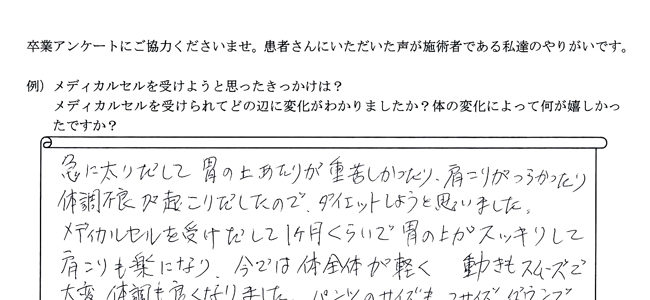 卒業アンケートにご協力くださいませ。患者さんにいただいた声が施術者である私達のやりがいです。
例）メディカルセルを受けようと思ったきっかけは？
メディカルセルを受けられてどの辺に変化がわかりましたか？体の変化によって何が嬉しかっ
たですか？
急に太りだして 胃の上あたりが重苦しかったり、肩こりがつらかったり
体調不良が起こりだしたので、ダイエットしようと思いました。
メディカルセルを受けだして1ヶ月くらいで胃の上がスッキリして
肩こりも楽になり、今では体全体が軽く 動きもスムーズで
大変 体調も良くなりました。パンツのサイズも